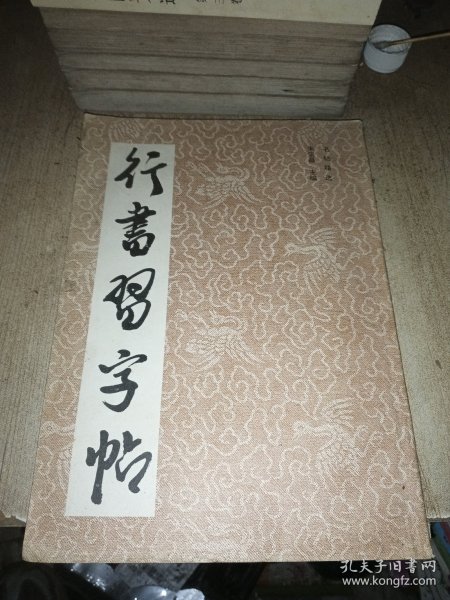 行書習字帖
孔夫子旧书网
www.kongfz.com